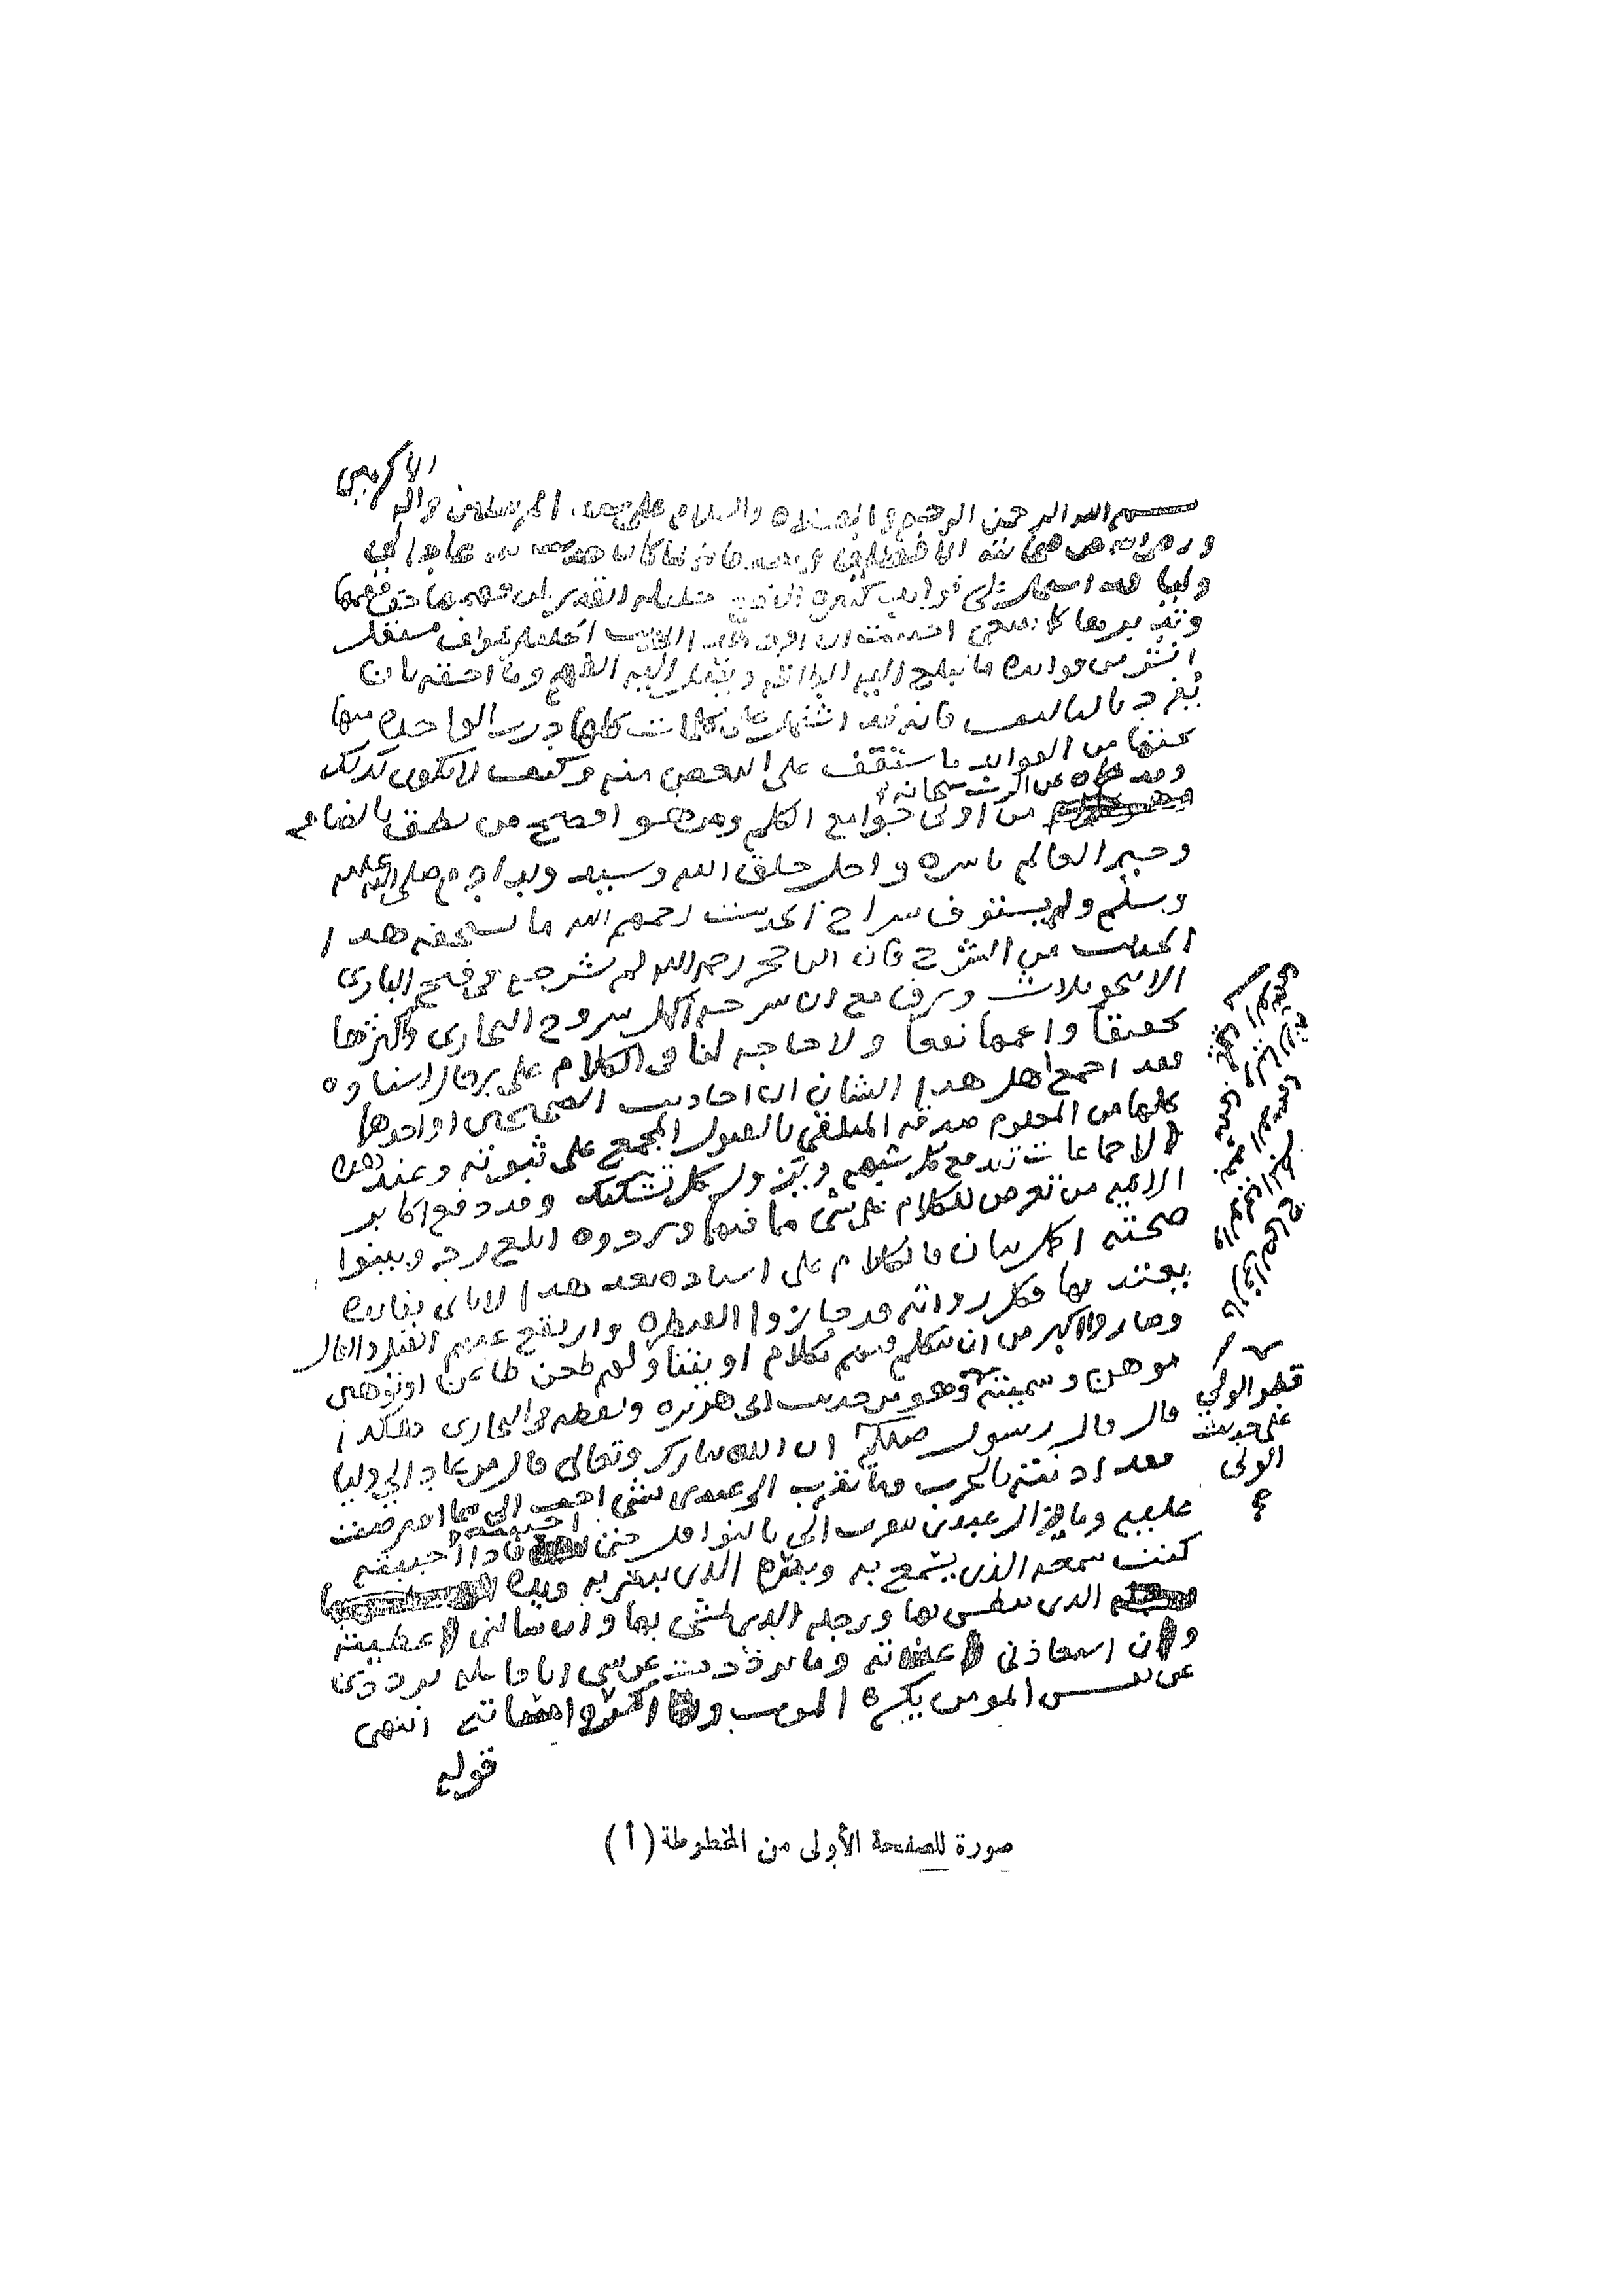 الاكرمين
بسم الله الرحمن الرحيم والصلاة والسلام على سيد المرسلين واله
ورضي الله عن صحابته الأفضلين وبعد فانه لما كان حديث من عادى لي
وليا قد اشتمل على فوايد كثيرة النفع جليلة القدر لمن فهمها حق فهمها
وتدبرها كما ينبغي احببت ان افرد هذا الحديث الجليل بمؤلف مستقل
انشر من فوايده ما تبلغ اليه الطاقة ويصل اليه الفهم وما احقه بان
يفرد بالتاليف فانه قد اشتمل على كلمات كلها درر الواحدة منها
تحتها من الفوايد ما ستقف على البعض منه وكيف لا يكون كذلك
وقد حكاه عن الرب سبحانه
من اوتي جوامع الكلم ومن هو افصح من نطق بالضاد
وخير العالم باسره واجل خلق الله وسيد ولد ادم صلى الله عليه
وسلم ولم يستوف شراح الحديث رحمهم الله ما يستحقه هذا
الحديث من الشرح فان ابن حجر رحمه الله لم يشرحه في فتح الباري
الا بنحو ثلاث ورق مع ان شرحه اكمل شروح البخاري واكثرها
تحقيقا واعمها نفعا ولا حاجة لنا في الكلام على رجال اسناده
فقد اجمع اهل هذا الشان ان احاديث الصحيحين او احدهما
كلها من المعلوم صدقه المتلقى بالقبول المجمع على ثبوته وعند هذه
الاجماعات تندفع كل شبهة ويزول كل تشكيك وقد دفع اكابر
الائمة من تعرض للكلام على شي مما فيهما وردوه ابلغ رد وبينوا
صحته اكمل بيان فالكلام على اسناده بعد هذا لا ياتي بفائدة
يعتد بها فكل رواته قد جازوا القنطرة وارتفع عنهم القيل والقال
وصاروا اكبر من ان يتكلم فيهم بكلام او يتناولهم طعن طاعن او توهين
موهن وسميته وهو من حديث ابي هريرة ولفظه في البخاري هكذا
قال قال رسول صلم ان الله تبارك وتعالى قال من عادى لي وليا
فقد اذنته بالحرب وما تقرب الي عبدي بشي احب الي مما افترضت
عليه وما يزال عبدي يتقرب الي بالنوافل حتى احببته فاذا أحببته
كنت سمعه الذي يسمع به وبصره الذي يبصر به ويده
الذي يبطش بها ورجله الذي يمشي بها وان سالني لاعطينه
وان استعاذني لاعيذنه وما ترددت عن شي انا فاعله ترددي
عن نفس المومن يكره الموت وانا اكره مساته انتهى
قوله
قطر الولي
على حديث
الولي
صورة للصفحة الأولى من المخطوطة (أ)